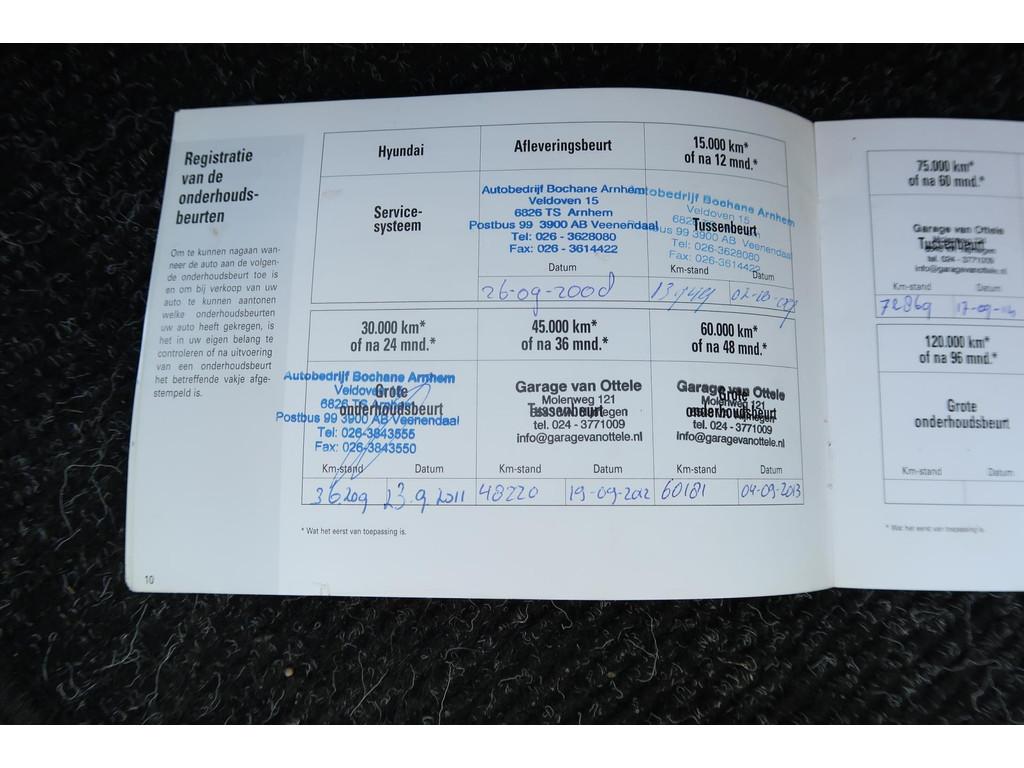 Registratie
van de
onderhouds-
beurten
Om te kunnen nagaan wan-
neer de auto aan de volgen-
de onderhoudsbeurt toe is
en om bij verkoop van uw
auto te kunnen aantonen
welke onderhoudsbeurten
uw auto heeft gekregen, is
het in uw eigen belang te
controleren of na uitvoering
van een onderhoudsbeurt
het betreffende vakje afge-
stempeld is.
10
Hyundai
Service-
systeem
Afleveringsbeurt
Autobedrijf Bochane Arnhem
Veldoven 15
6826 TS Arnhem
Postbus 99 3900 AB Veenendaal
Tel: 026 - 3628080
Fax: 026 - 3614422
Datum
26-09-2008
15.000 km*
of na 12 mnd.*
Autobedrijf Bochane Arnhem
Veldoven 15
Tussenbeurt
99 3900 AB Veenendaal
Tel: 026-3628080
Fax: 026-3614422
Km-stand Datum
30.000 km*
of na 24 mnd.*
Autobedrijf Bochane Arnhem
Veldoven
Grote
6826 TS Arnhem
onderhoudsbeurt
Postbus 99 3900 AB Veenendaal
Tel: 026-3843555
Fax: 026-3843550
Km-stand Datum
36.209 23.9.2011
45.000 km*
of na 36 mnd.*
Garage van Ottele
Molenweg 121
Tussenbeurt
tel. 024 - 3771009
info@garagevanottele.nl
Km-stand Datum
48220 19-09-2012
60.000 km*
of na 48 mnd.*
Garage van Ottele
Grote
Molenweg 121
onderhoudsbeurt
tel. 024 - 3771009
info@garagevanottele.nl
Km-stand Datum
60181 04-09-2013
* Wat het eerst van toepassing is.
75.000 km*
of na 60 mnd.*
Garage van Ottele
Tussenbeurt
tel. 024 - 3771009
info@garagevanottele.nl
Km-stand Datum
72869 17-09-14
120.000 km*
of na 96 mnd.*
Grote
onderhoudsbeurt
Km-stand Datum
* Wat het eerst van toepassing is.